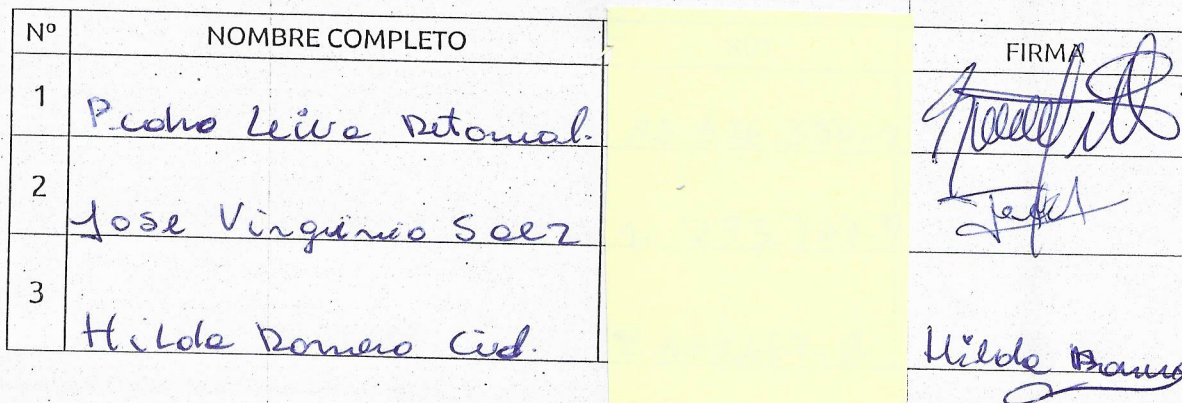 Nº NOMBRE COMPLETO FIRMA
1 Pedro Leiva Retamal.
2 Jose Virginio Saez
3 Hilda Romero Cid.
Hilda Romero